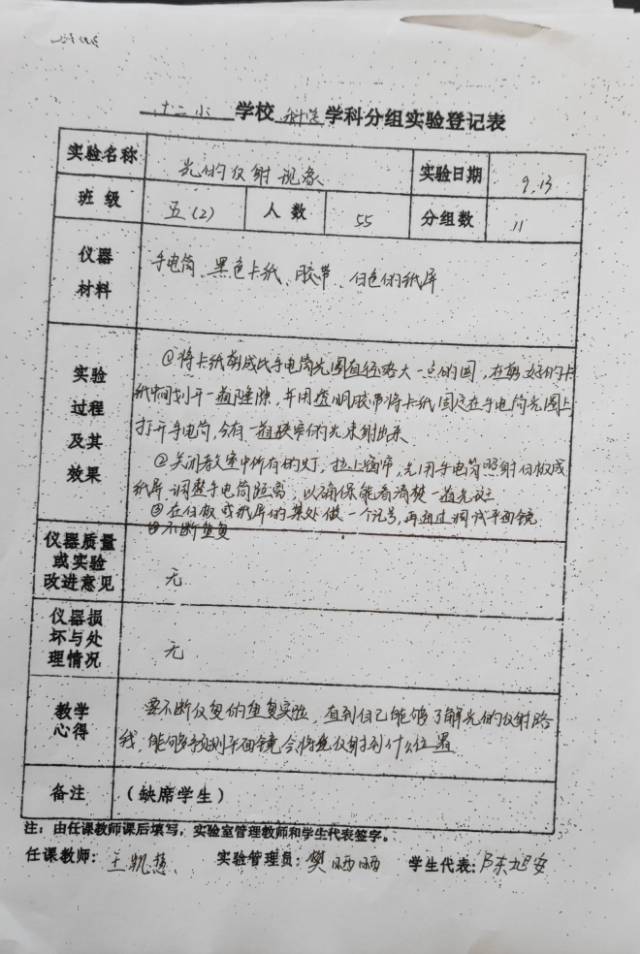 十二小 学校 科学 学科分组实验登记表
实验名称 光的反射现象 实验日期 9.13
班 级 五(2) 人 数 55 分组数 11
仪器材料 手电筒、黑色卡纸、胶带、白色的纸屏
实验过程及其效果
①将卡纸剪成比手电筒光圈直径略大一点的圆,在剪好的卡
纸中间划开一道缝隙,并用透明胶带将卡纸固定在手电筒光圈上
打开手电筒,会有一道狭窄的光束射出来
②关闭教室中所有的灯,拉上窗帘,先用手电筒照射白板或
纸屏,调整手电筒距离,以确保能看清楚一道光
③在白板或纸屏的某处做一个记号,再通过调试平面镜
④不断重复
仪器质量或实验改进意见 无
仪器损坏与处理情况 无
教学心得 要不断反复的重复实验,直到自己能够了解光的反射路
线,能够预测平面镜会将光反射到什么位置
备注 (缺席学生)
注:由任课教师课后填写,实验室管理教师和学生代表签字。
任课教师: 王凯 实验管理员: 樊晒晒 学生代表: 陈旭安